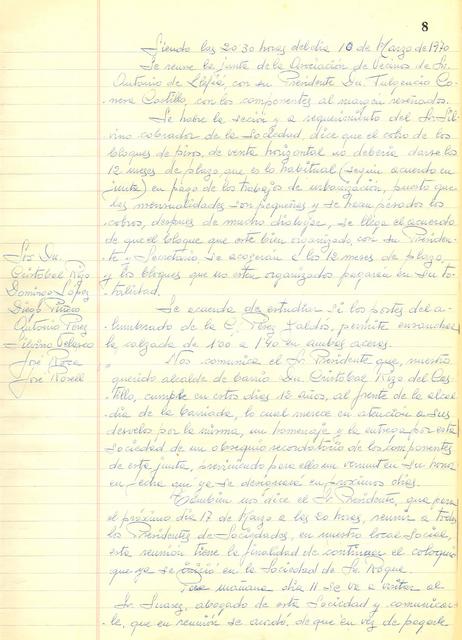 8
Siendo las 20'30 horas del dia 10 de Marzo de 1970
Se reune la junta de la Asociación de Vecinos de Sn.
Antonio de Lapié, con su Presidente Dn. Fulgencio Co-
nera Castillo, con los componentes al margen reseñados.
Se habre la seción y a requerimiento del Sr. Sil-
vino cobrador de la Sociedad, dice que el cobro de los
bloques de pisos, de venta horizontal no deberia darse los
12 meses de plazo, que es lo habitual (según acuerdo en
junta) en pago de los trabajos de urbanización, puesto que
las mensualidades son pequeñas y se hacen pesados los
cobros, despues de mucho dialogar, se llega el acuerdo
de que el bloque que este bien organizado, con su Presiden-
te y Secretario, se acogeran a los 12 meses de plazo,
y los bloques que no esten organizados pagarán en su to-
talidad.
Srs. Dn.
Cristobal Rizo
Domingo López
Diego Piñero
Antonio Perez
Silvino Velasco
José Roca
José Rosell
Se acuerda de estudiar si los postes del a-
lumbrado de la C/ Pérez Galdós, permite ensanchar
la calzada de 1'00 a 1'40 en ambas aceras.
Nos comunica el Sr. Presidente que, nuestro
querido alcalde de barrio Dn. Cristobal Rizo del Cas-
tillo, cumple en estos dias 12 años, al frente de la alcal-
dia de la barriada, lo cual merece en atención a sus
desvelos por la misma, un homenaje y la entrega por esta
sociedad de un obsequio recordatorio de los componentes
de esta junta, previniendo para ello un vermut en su honor
en fecha que ya se designará en proximos dias.
Tambien nos dice el Sr. Presidente, que para
el próximo dia 17 de Marzo a las 20 horas, reunir a todos
los Presidentes de Sociedades, en nuestro local social,
esta reunión tiene la finalidad de continuar el coloquio
que ya se inició en la Sociedad de Sn. Roque.
Para mañana dia 11 se va a visitar al
Sr. Suarez, abogado de esta Sociedad y comunicar-
le, que en reunión se acordó, de que en vez de pagarle